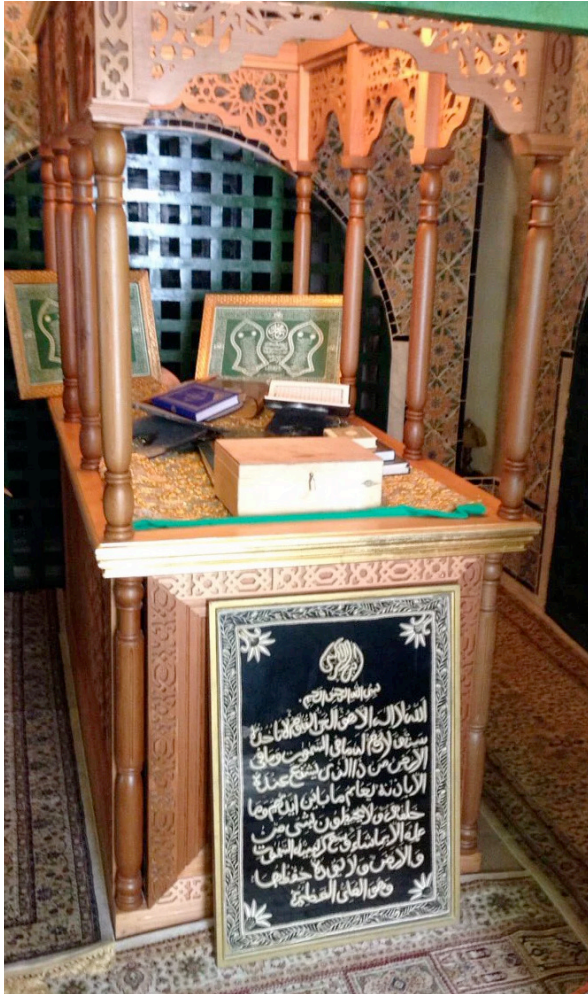 بسم الله الرحمن الرحيم
الله لا إله الا هو الحي القيوم لا تاخذه
سنة ولا نوم له ما في السموت وما في
الارض من ذا الذي يشفع عنده
الا باذنه يعلم ما بين ايديهم وما
خلفهم ولا يحيطون بشيء من
علمه الا بما شاء وسع كرسيه السموت
والارض ولا يؤده حفظهما
وهو العلي العظيم